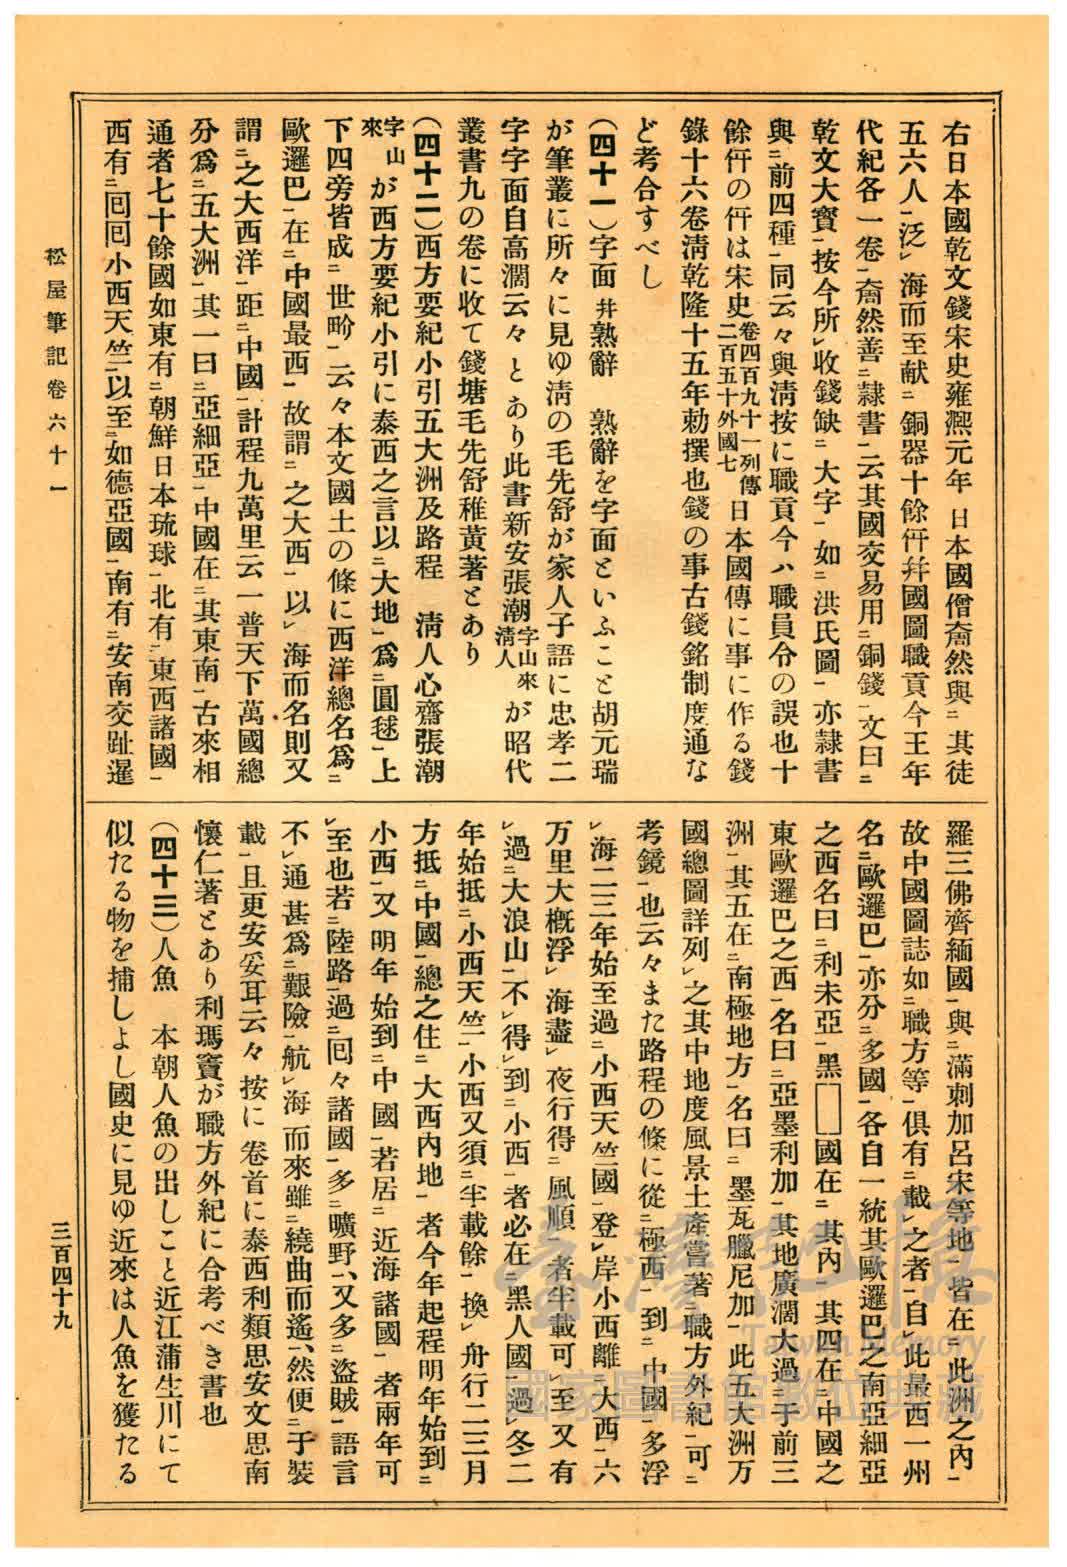 右日本國乾文錢宋史雍凞元年 日本國僧奝然與ニ其徒
五六人一泛レ海而至献ニ銅器十餘仟幷國圖職貢今王年
代紀各一卷一奝然善ニ隷書一云其國交易用ニ銅錢一文曰ニ
乾文大寳一按今所レ收錢缺ニ大字一如ニ洪氏圖一亦隷書
與ニ前四種一同云々與淸按に職貢今ハ職員令の誤也十
餘仟の仟は宋史卷四百九十一列傳二百五十外國七日本國傳に事に作る錢
錄十六卷淸乾隆十五年勅撰也錢の事古錢銘制度通な
ど考合すべし
(四十一)字面幷熟辭 熟辭を字面といふこと胡元瑞
が筆叢に所々に見ゆ淸の毛先舒が家人子語に忠孝二
字字面自高濶云々とあり此書新安張潮字山來淸人が昭代
叢書九の卷に收て錢塘毛先舒稚黃著とあり
(四十二)西方要紀小引五大洲及路程 淸人心齋張潮
字山來が西方要紀小引に泰西之言以ニ大地一爲ニ圓毬一上
下四旁皆成ニ世畍一云々本文國土の條に西洋總名爲ニ
歐邏巴一在ニ中國最西一故謂ニ之大西一以レ海而名則又
謂ニ之大西洋一距ニ中國一計程九萬里云一普天下萬國總
分爲ニ五大洲一其一曰ニ亞細亞一中國在ニ其東南一古來相
通者七十餘國如東有ニ朝鮮日本琉球一北有ニ東西諸國一
西有ニ回回小西天竺一以至ニ如德亞國一南有ニ安南交趾暹
羅三佛齊緬國一與ニ滿刺加呂宋等地一皆在ニ此洲之內一
故中國圖誌如ニ職方等一俱有ニ載レ之者一自レ此最西一州
名ニ歐邏巴一亦分ニ多國一各自一統其歐邏巴之南亞細亞
之西名曰ニ利未亞一黑□國在ニ其內一其四在ニ中國之
東歐邏巴之西一名曰ニ亞墨利加一其地廣濶大過ニ于前三
洲一其五在ニ南極地方一名曰ニ墨瓦臘尼加一此五大洲万
國總圖詳列レ之其中地度風景土產嘗著ニ職方外紀一可ニ
考鏡一也云々また路程の條に從ニ極西一到ニ中國一多浮
レ海二三年始至過ニ小西天竺國一登レ岸小西離ニ大西一六
万里大槪浮レ海盡レ夜行得ニ風順一者半載可レ至又有
レ過ニ大浪山一不レ得レ到ニ小西一者必在ニ黑人國一過レ冬二
年始抵ニ小西天竺一小西又須ニ半載餘一換レ舟行二三月
方抵ニ中國一總之住ニ大西內地一者今年起程明年始到ニ
小西一又明年始到ニ中國一若居ニ近海諸國一者兩年可
レ至也若ニ陸路一過ニ回々諸國一多ニ曠野、又多ニ盜賊一語言
不レ通甚爲ニ艱險一航レ海而來雖ニ繞曲而遙、然便ニ于裝
載一且更安妥耳云々按に卷首に泰西利類思安文思南
懷仁著とあり利瑪竇が職方外紀に合考べき書也
(四十三)人魚 本朝人魚の出しこと近江蒲生川にて
似たる物を捕しよし國史に見ゆ近來は人魚を獲たる
松屋筆記卷六十一
三百四十九
臺灣記憶
Taiwan Memory
國家圖書館數位典藏